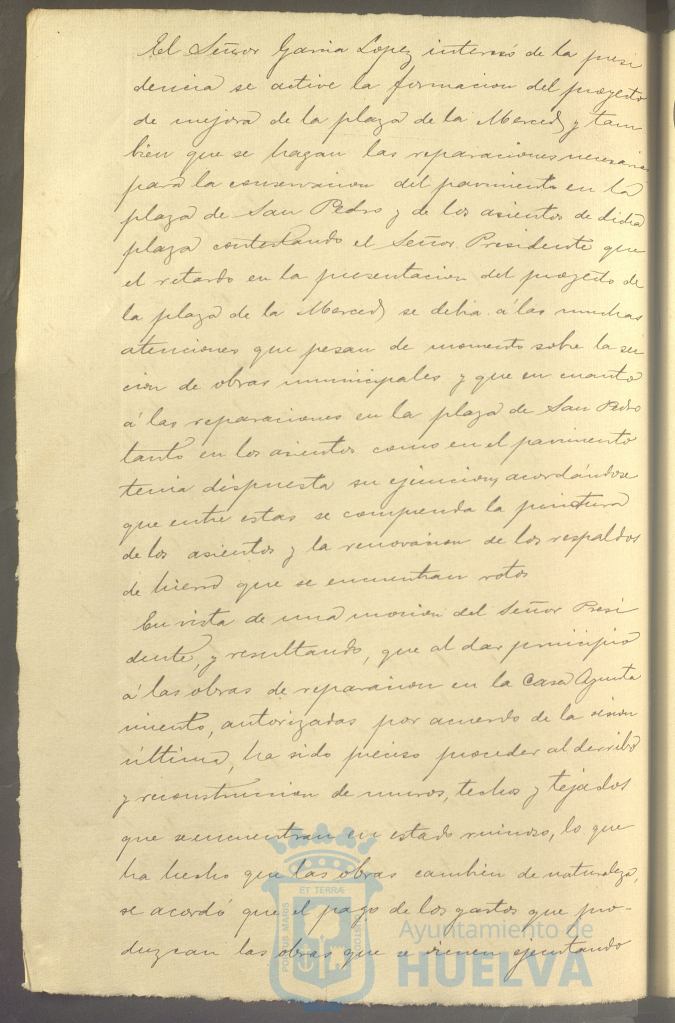 El Señor Garcia Lopez interesó de la presi
dencia se active la formacion del proyecto
de mejora de la plaza de la Merced y tam
bien que se hagan las reparaciones necesarias
para la conservacion del pavimento en la
plaza de San Pedro y de los asientos de dicha
plaza contestando el Señor Presidente que
el retardo en la presentacion del proyecto de
la plaza de la Merced se debia á las muchas
atenciones que pesan de momento sobre la sec
cion de obras municipales y que en cuanto
á las reparaciones en la plaza de San Pedro
tanto en los asientos como en el pavimento
tenia dispuesta su ejecucion, acordándose
que entre estas se comprenda la pintura
de los asientos y la renovacion de los respaldos
de hierro que se encuentran rotos
En vista de una mocion del Señor Presi
dente, y resultando, que al dar principio
á las obras de reparacion en la Casa Ayunta
miento, autorizadas por acuerdo de la sesion
última, ha sido preciso proceder al derribo
y reconstruccion de muros, techos y tejados
que se encuentran en estado ruinoso, lo que
ha hecho que las obras cambien de naturaleza,
se acordó que el pago de los gastos que pro-
duzcan las obras que se vienen ejecutando
ET TERRÆ
PORTUS MARIS
CUSTODIA
Ayuntamiento de
HUELVA